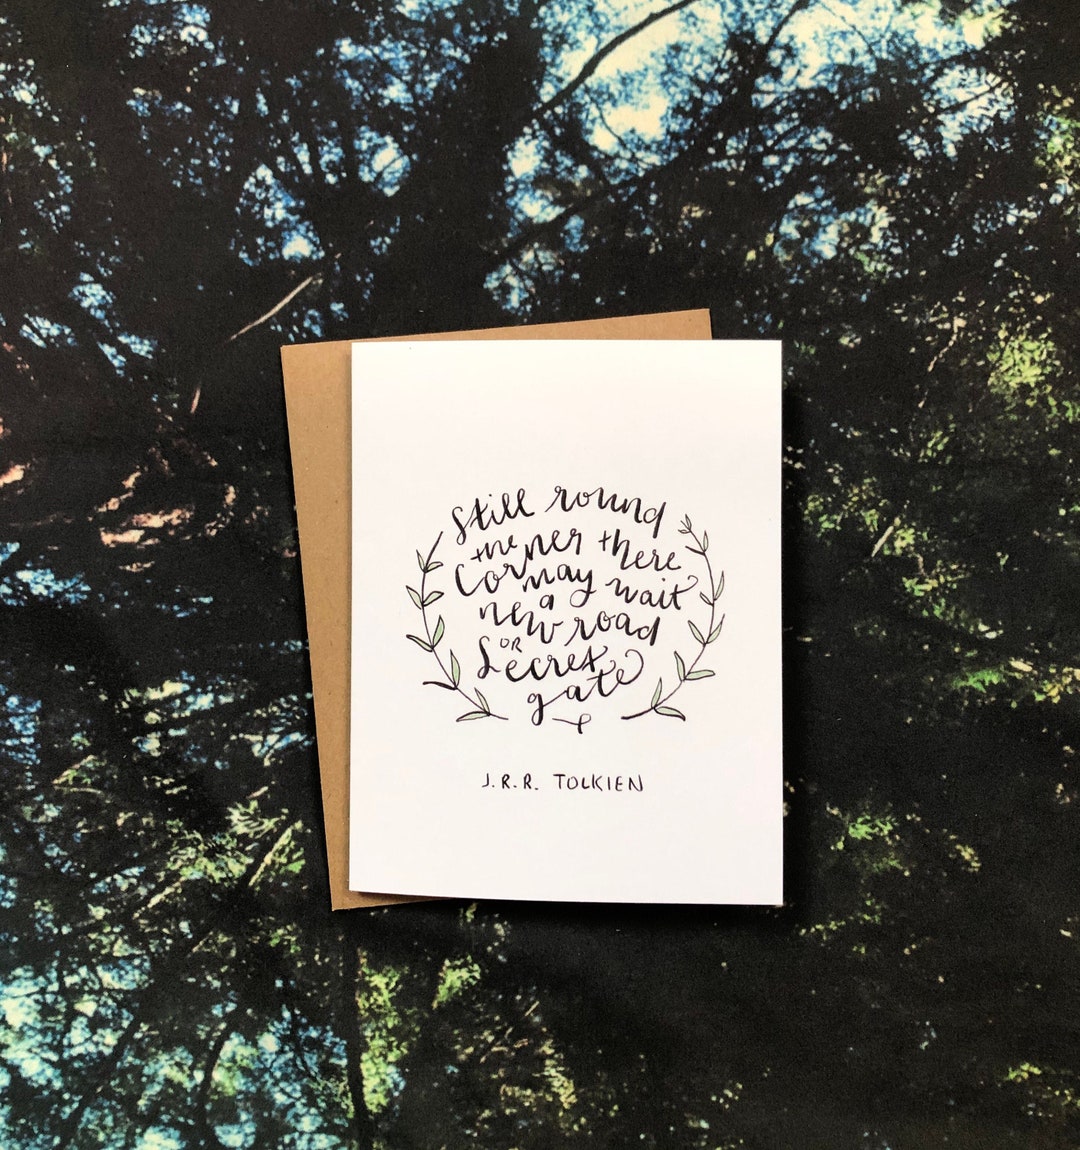 Still round
the
corner there
may wait
a
new road
OR
Secret
gate
J.R.R. TOLKIEN